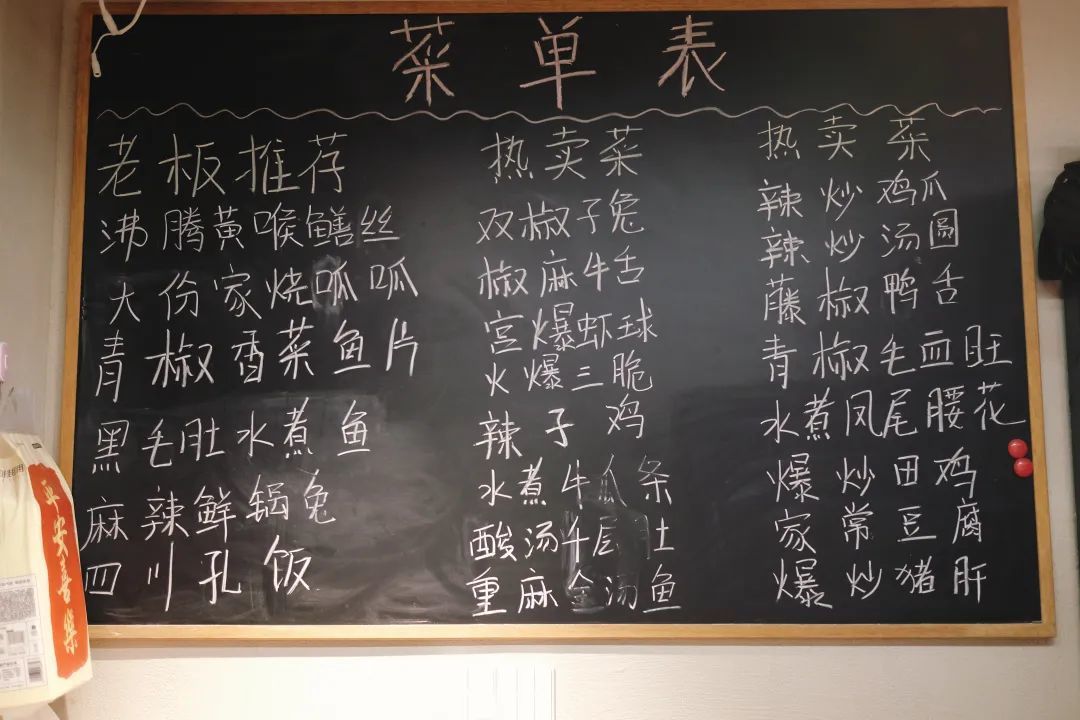 菜单表
老板推荐
沸腾黄喉鳝丝
大份家烧呱呱
青椒香菜鱼片
黑毛肚水煮鱼
麻辣鲜锅兔
四川孔饭
热卖菜
双椒子兔
椒麻牛舌
宫爆虾球
火爆三脆
辣子鸡
水煮牛瓜条
酸汤牛尾土
重麻金汤鱼
热卖菜
辣炒鸡爪
辣炒汤圆
藤椒鸭舌
青椒毛血旺
水煮凤尾腰花
爆炒田鸡
家常豆腐
爆炒猪肝
平安喜樂